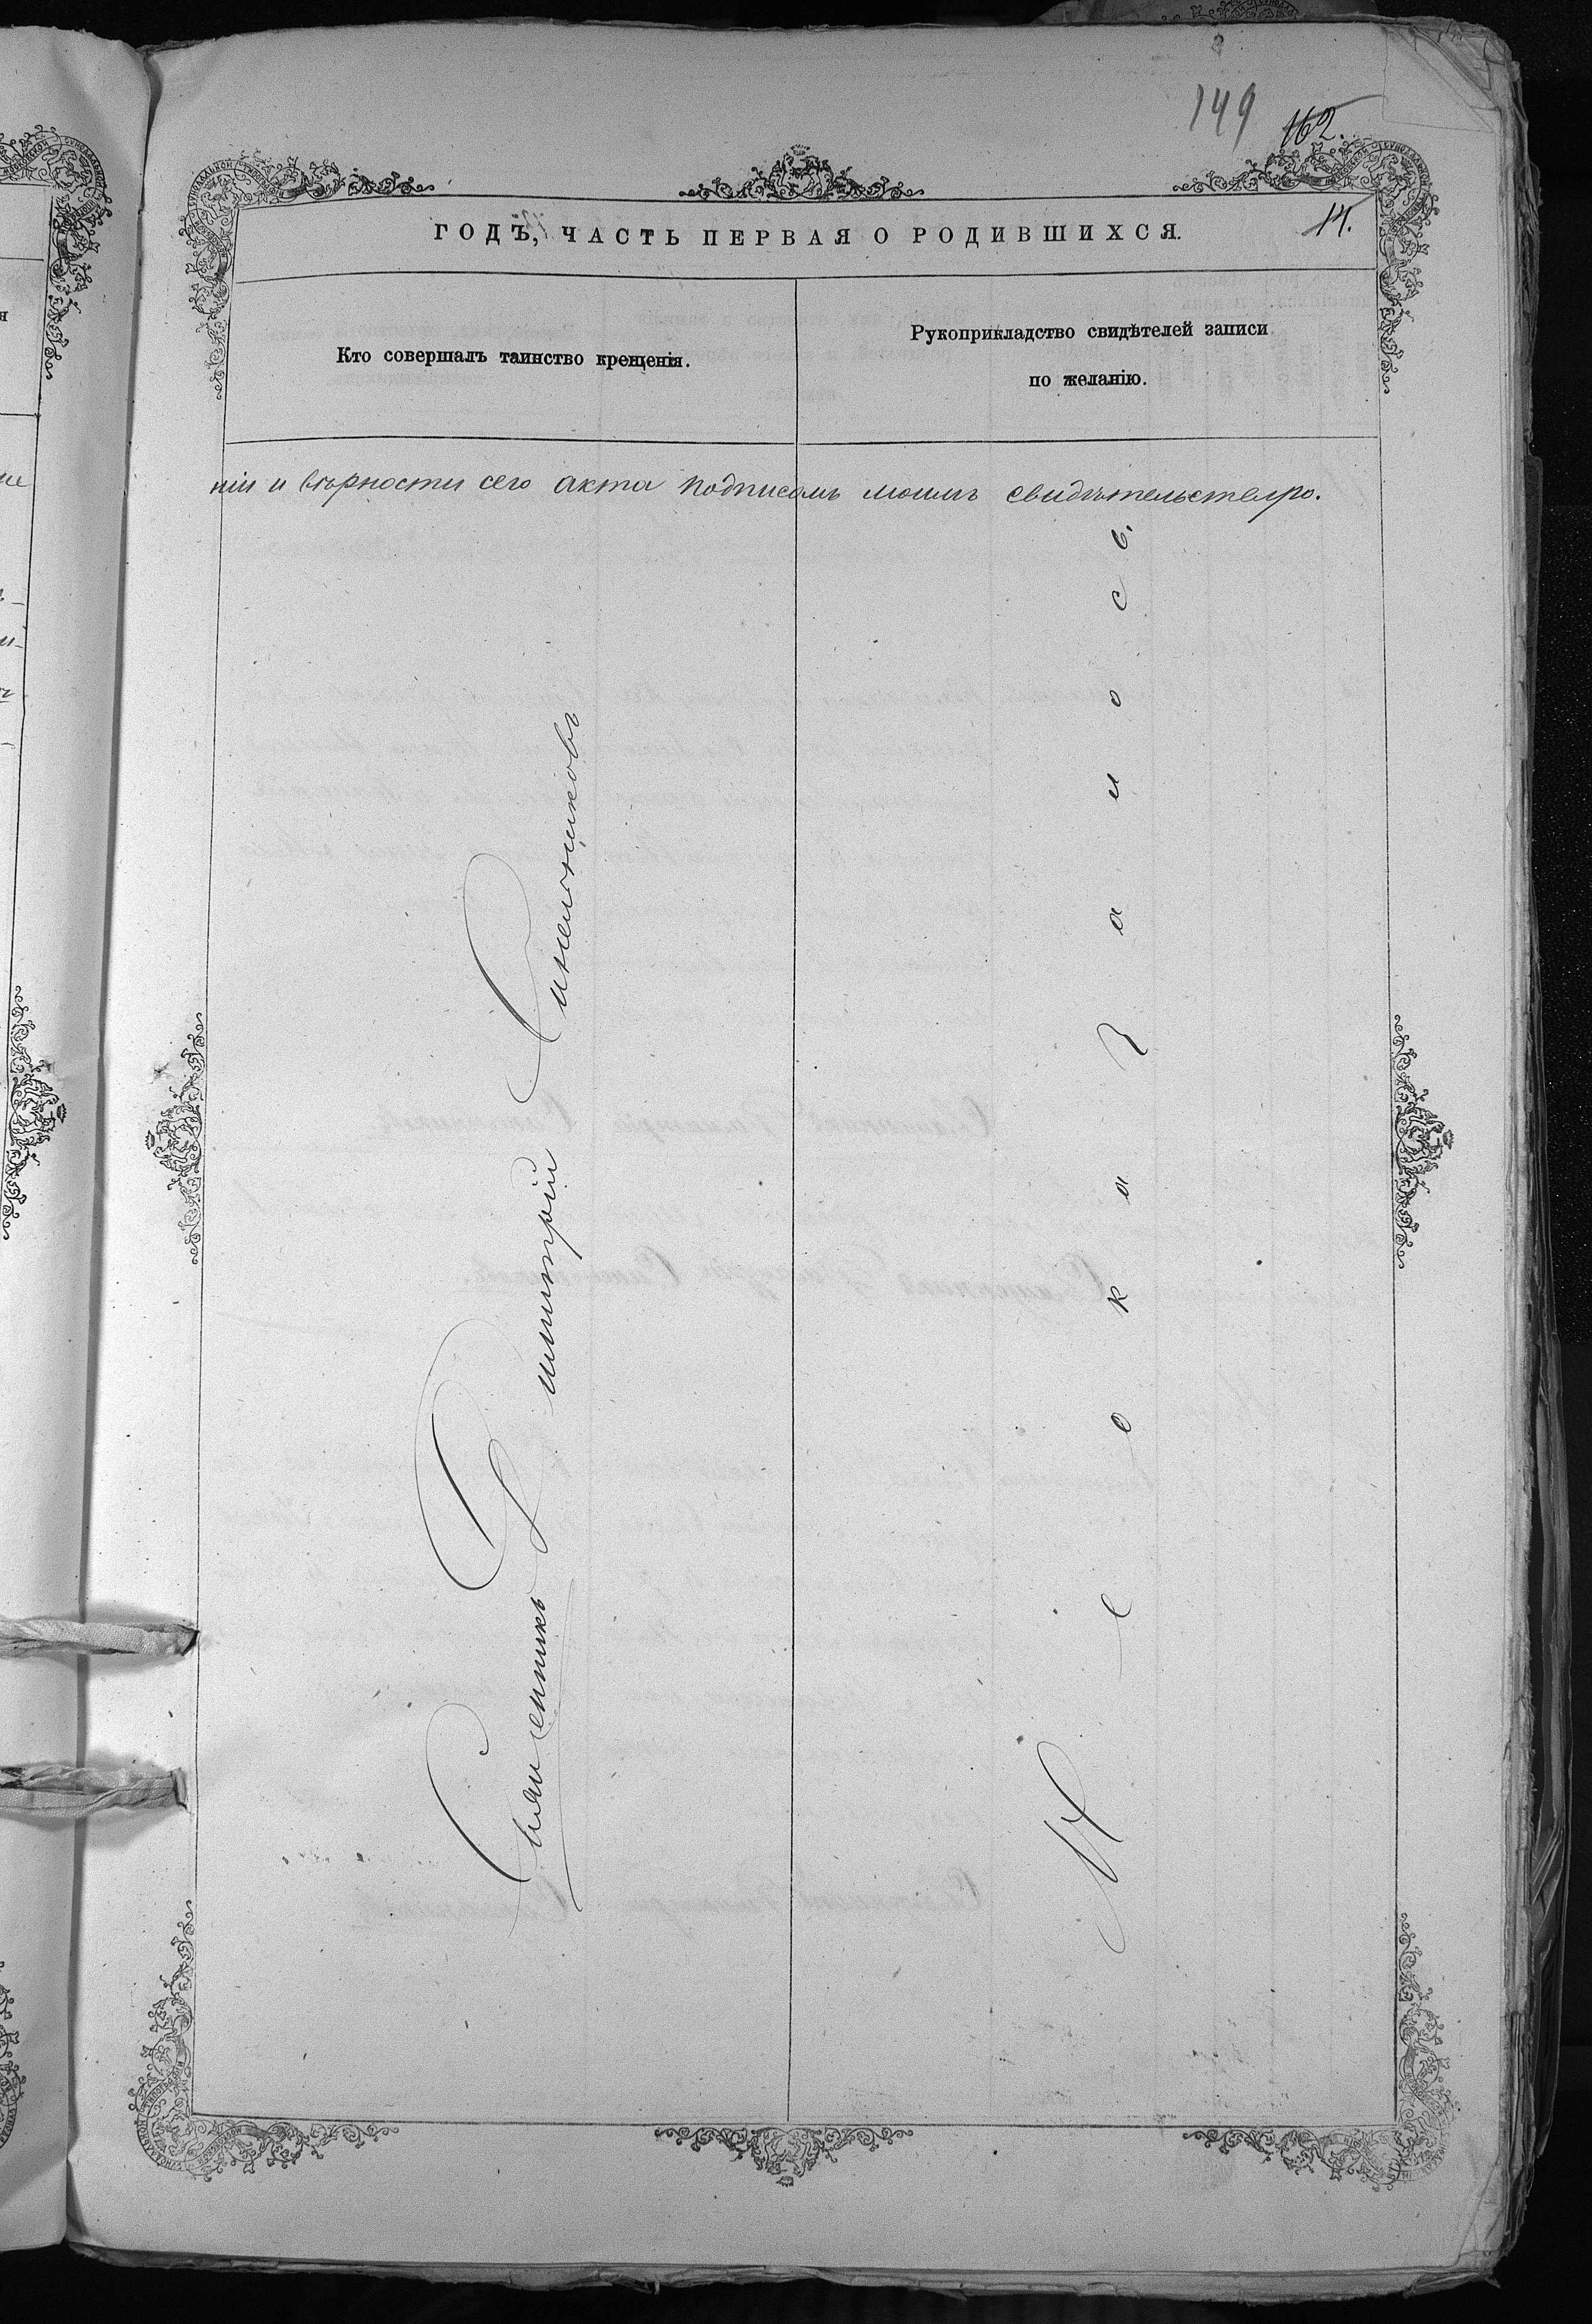 149
162.
14.
ГОДЪ, ЧАСТЬ ПЕРВАЯ О РОДИВШИХСЯ.
Кто совершалъ таинство крещенія.
Рукоприкладство свидѣтелей записи
по желанію.
ніи и вѣрности сего акта подписомъ моимъ свидѣтельствую.
Священникъ Димитрій Синельниковъ
Не оказалось.